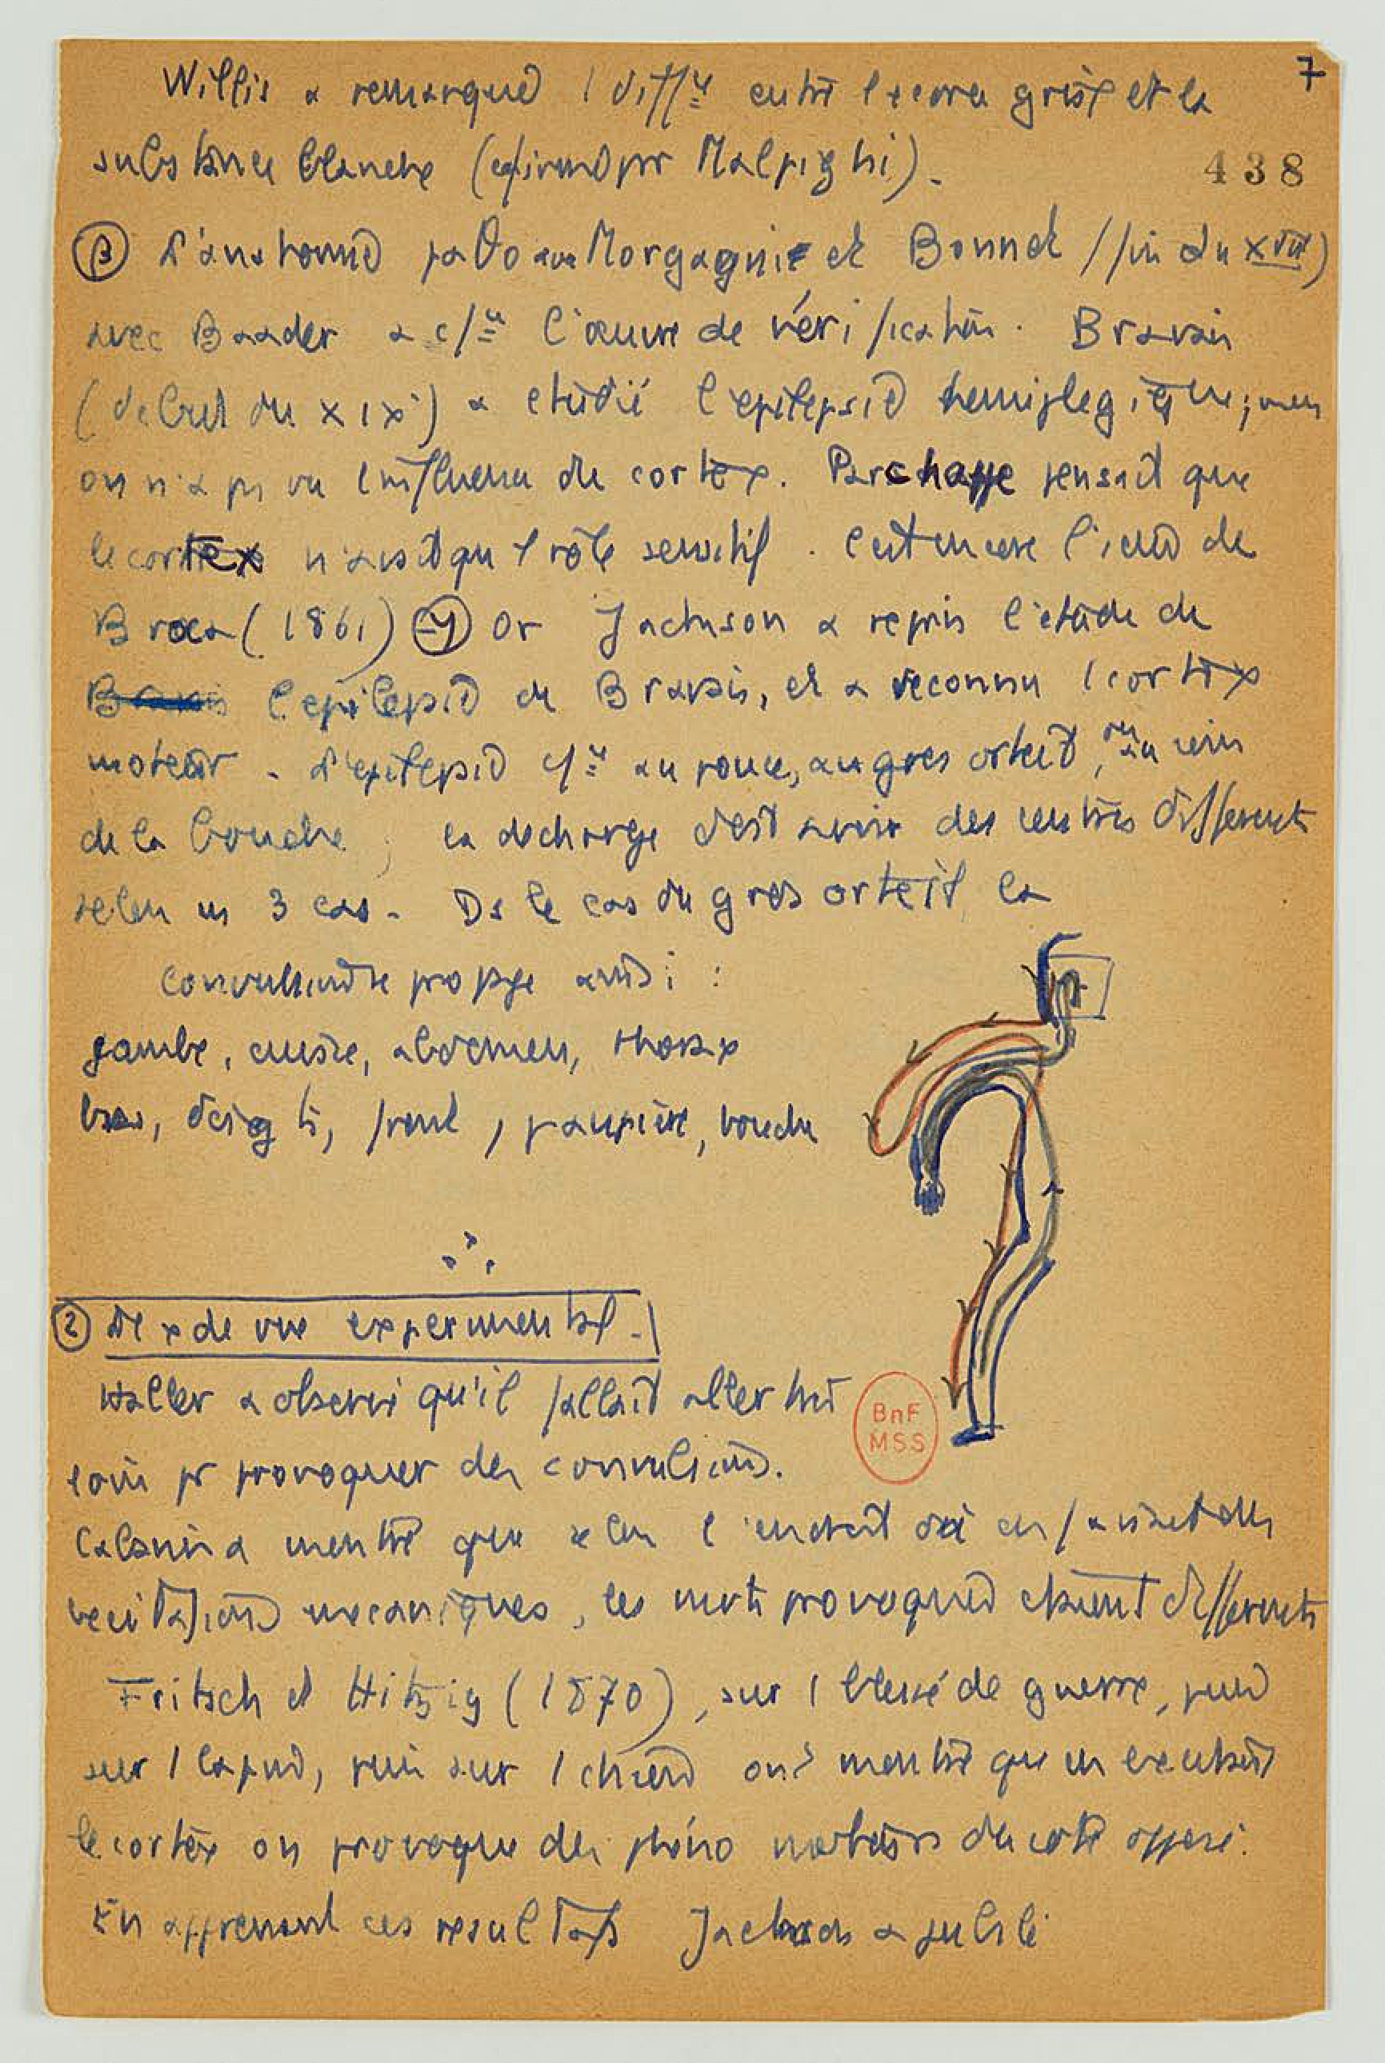 7
Willis a remarqué 1 diff entre l'écorce grise et la
substance blanche (confirmé par Malpighi).
438
β L'anatomie patho avec Morgagni et Bonnet (fin du XVIII)
avec Baader a l'œuvre de vérification. Bravais
(début du XIX) a étudié l'épilepsie hemiplegique ; mais
on n'a pas vu l'influence du cortex. Parchappe pensait que
le cortex n'avait qu'1 rôle sensitif. C'est encore l'idée de
Broca (1861) γ Or Jackson a repris l'étude de
l'epilepsie de Bravais, et a reconnu 1 cortex
moteur. L'epilepsie au pouce, au gros orteil, ou au coin
de la bouche ; la décharge doit avoir des centres différents
selon les 3 cas. Ds le cas du gros orteil la
convulsion se propage ainsi :
jambe, cuisse, abdomen, thorax
bras, doigts, front, paupière, bouche
2 Pt de vue experimental.
Haller a observé qu'il fallait aller très
loin pr provoquer des convulsions.
a montré que selon l'endroit où on faisait des
excitations mécaniques, les mvts provoqués étaient différents
Fritsch et Hitzig (1870), sur 1 blessé de guerre, puis
sur 1 lapin, puis sur 1 chien ont montré que en excitant
le cortex on provoque des phéno moteurs du côté opposé.
En apprenant ces resultats Jackson a publié
BnF
MSS